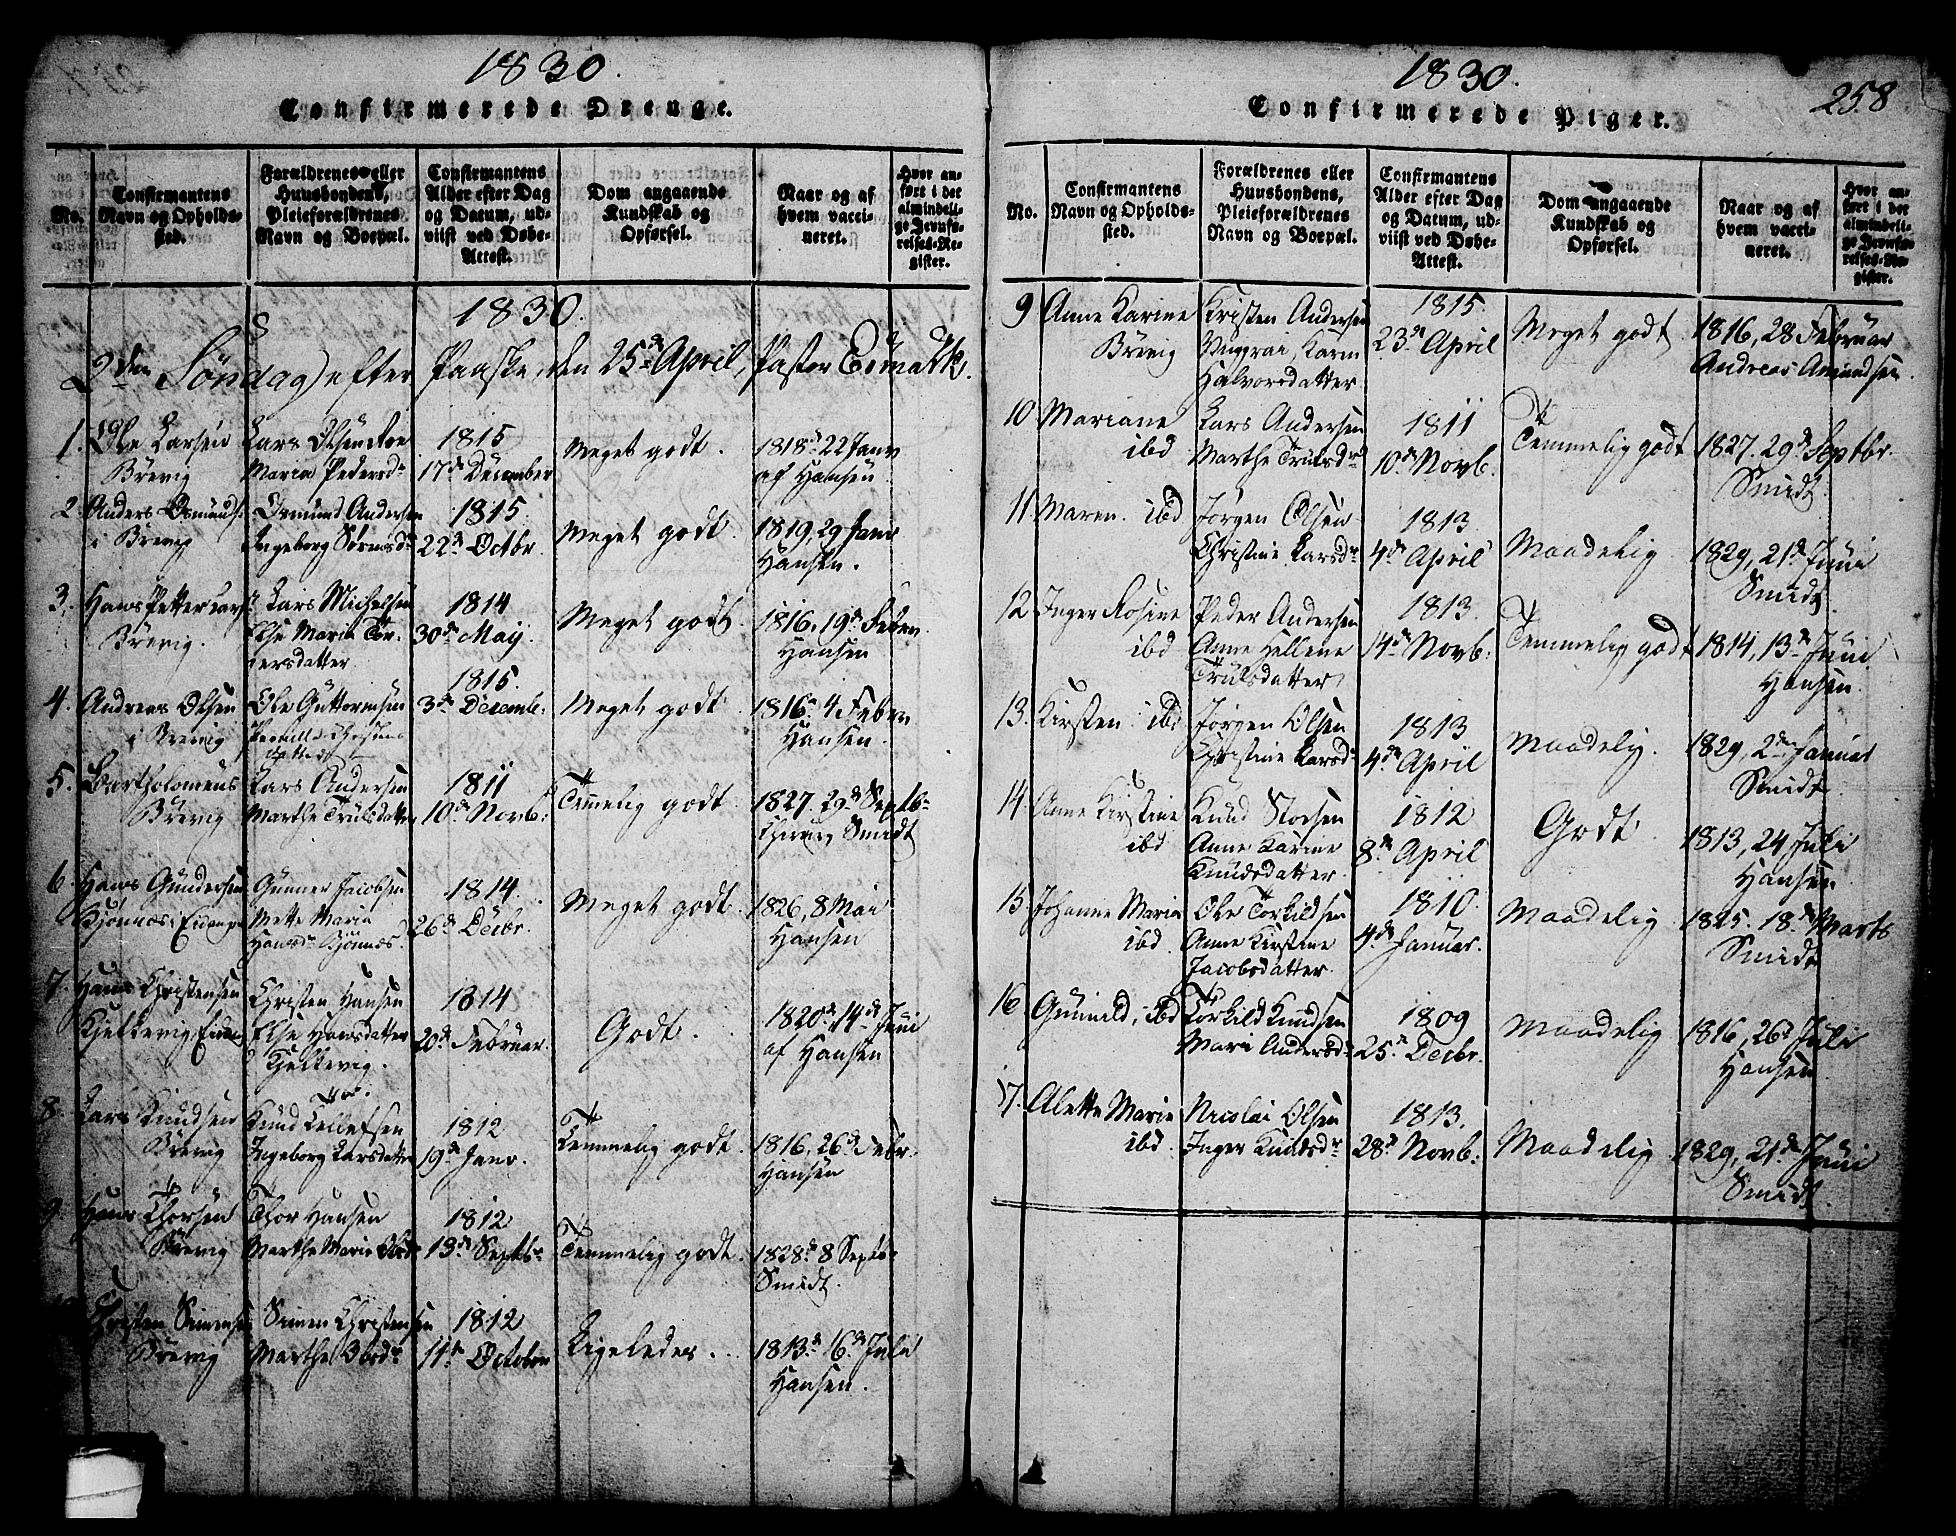 1830.
Confirmerede Drenge.
No.
Confirmantens Navn og Opholdssted.
Forældrenes eller Huusbondens, Pleieforældrenes Navn og Boepæl.
Confirmantens Alder efter Dag og Datum, udviist ved Døbe-Attest.
Dom angaaende Kundskab og Opførsel.
Naar og af hvem vaccineret.
Hvor anført i det almindelige Jevnførelses-Register.
1830.
2den Søndag efter Paaske, den 25de April, Pastor Esmark.
1. Ole Larsen Brevig
Lars Olsen
Maria Pedersdr
1815
17de December
Meget godt.
1818 22 Janv
af Hansen
2. Anders Osmunds. i Brevig
Osmund Andersen
Ingeborg Sørensdr
1815.
22de Octbr.
Meget godt.
1819, 29 Janv
Hansen.
3. Hans Petter Lars. Brevig.
Lars Michelsen
Else Maria
1814
30de Maij.
Meget godt.
1816, 19de Febr.
Hansen
4. Andreas Olsen i Brevig
Ole Guttormsen
Pernille Christensdatter
1815.
3de Decemb:
Meget godt.
1816, 4 Febr.
Hansen.
5. Bartholomeus Brevig
Lars Andersen
Marthe Trulsdatter
1811
10de Novb:
Temmelig godt
1827. 29de Septb.
Smidt
6. Hans Gundersen
Kjønnæs i Eidanger
Gunner Jacobsen
Mette Maria
Hansdr Kjønnæs.
1814.
26de Decbr.
Meget godt.
1826, 8 Mai
Hansen
7. Hans Christensen
Kjelkevig, Eidang
Christen Hansen
Else Hansdatter
Kjelkevig.
1814
20de Februar.
Godt.
1820, 14de Juni
af Hansen
8. Lars Knudsen Brevig
Knud Tellefsen
Ingeborg Larsdatter
1812
19de Janv.
Temmelig godt.
1816, 26de Febr.
Hansen
9. Hans Thorsen Brevig
Thor Hansen
Marthe Marie
1812
13de Septbr
Temmelig godt.
1828 8 Septb
Smidt.
Christen Simensen Brevig
Simen Christensen
Marthe Olsdr
1812
11te October
Ligeledes.
1813 16de Juli
Hansen.
1830.
258
Confirmerede Piger.
No.
Confirmantens Navn og Opholdssted.
Forældrenes eller Huusbondens, Pleieforældrenes Navn og Boepæl.
Confirmantens Alder efter Dag og Datum, udviist ved Døbe-Attest.
Dom angaaende Kundskab og Opførsel.
Naar og af hvem vaccineret.
Hvor anført i det almindelige Jevnførelses-Register.
9 Anne Karine Brevig
Kristen Andersen
Karen
Halvorsdatter
1815.
23de April
Meget godt
1816, 28 Februar
Andreas Amundsen.
10 Mariane ibd
Lars Andersen
Marthe Trulsdr
1811
10de Novb.
Temmelig godt
1827. 29de Septbr.
Smidt.
11 Maren. ibd
Jørgen Olsen
Christine Larsdr
1813
4de April
Maadelig
1829, 21de Juni
Smidt.
12 Inger Rosine ibd
Peder Andersen
Anne Hellene
Trulsdatter
1813.
14de Novb:
Temmelig godt
1814, 13de Juni
Hansen.
13. Kirsten ibd
Jørgen Olsen
Christine Larsdr
1813
4de April
Maadelig.
1829, 2den Januar
Smidt.
14. Anne Kirstine ibd
Knud
Anne Karine
Knudsdatter.
1812
8de April
Godt.
1813, 24 Juli
Hansen
15 Johanne Maria ibd
Ole Torkildsen
Anne Kirstine
Jacobsdatter.
1810.
4de Januar.
Maadelig
1825. 18de Marts
Smidt
16 Gunild, ibd
Torkild Knudsen
Mari Andersdr
1809
25de Decbr.
Maadelig
1816, 26de Juli
Hansen
17. Alette Marie ibd.
Nicolai Olsen
Inger Knudsdr
1813.
28de Novb:
Maadelig
1829, 21de Juni
Smidt.